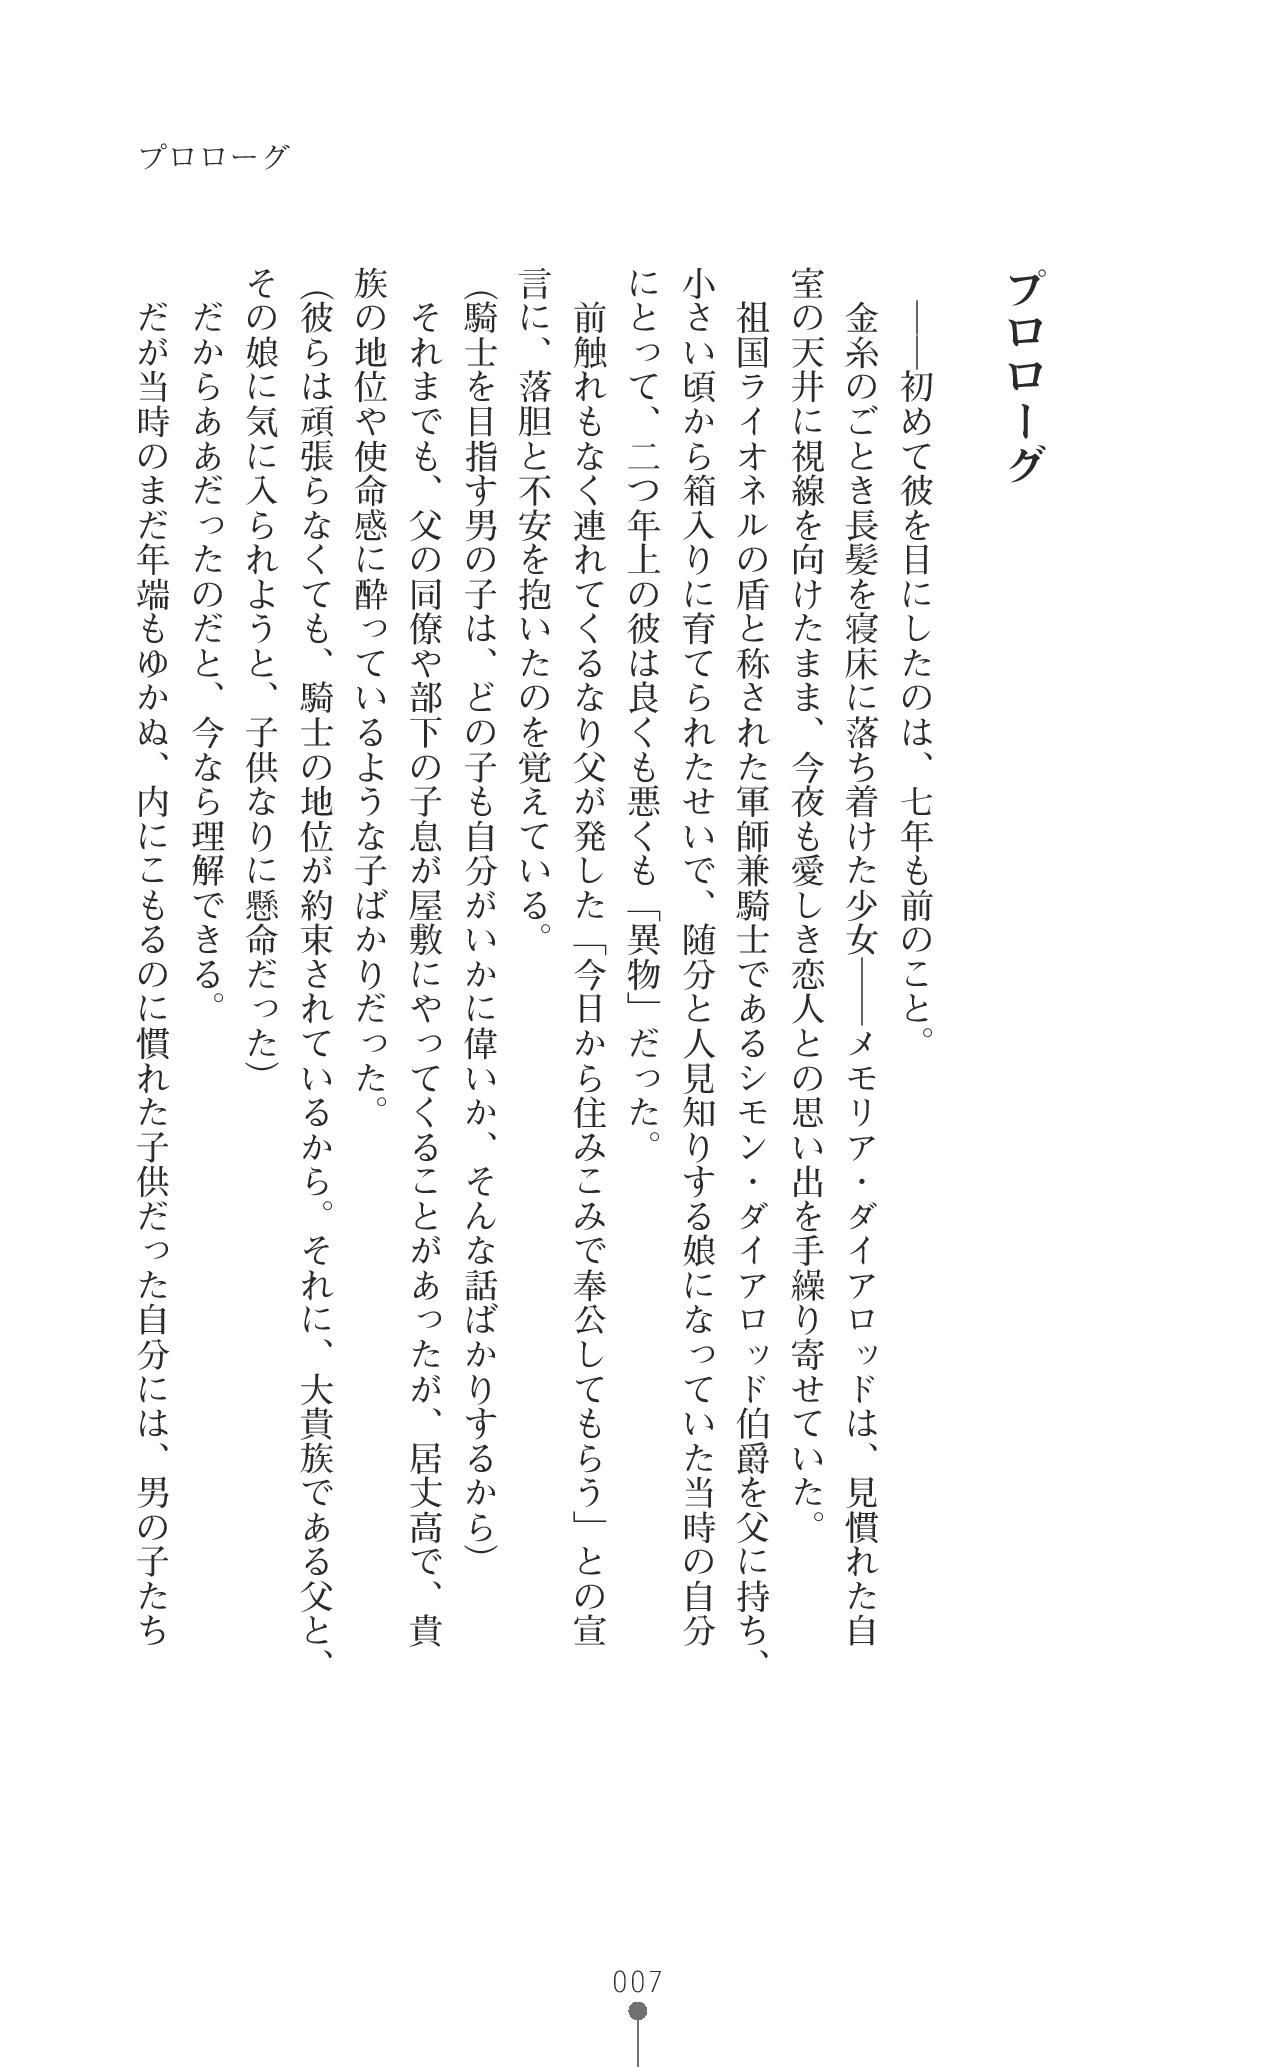 プロローグ
プロローグ
――初めて彼を目にしたのは、七年も前のこと。
金糸のごとき長髪を寝床に落ち着けた少女――メモリア・ダイアロッドは、見慣れた自
室の天井に視線を向けたまま、今夜も愛しき恋人との思い出を手繰り寄せていた。
祖国ライオネルの盾と称された軍師兼騎士であるシモン・ダイアロッド伯爵を父に持ち、
小さい頃から箱入りに育てられたせいで、随分と人見知りする娘になっていた当時の自分
にとって、二つ年上の彼は良くも悪くも「異物」だった。
前触れもなく連れてくるなり父が発した「今日から住みこみで奉公してもらう」との宣
言に、落胆と不安を抱いたのを覚えている。
(騎士を目指す男の子は、どの子も自分がいかに偉いか、そんな話ばかりするから)
それまでも、父の同僚や部下の子息が屋敷にやってくることがあったが、居丈高で、貴
族の地位や使命感に酔っているような子ばかりだった。
(彼らは頑張らなくても、騎士の地位が約束されているから。それに、大貴族である父と、
その娘に気に入られようと、子供なりに懸命だった)
だからああだったのだと、今なら理解できる。
だが当時のまだ年端もゆかぬ、内にこもるのに慣れた子供だった自分には、男の子たち
007